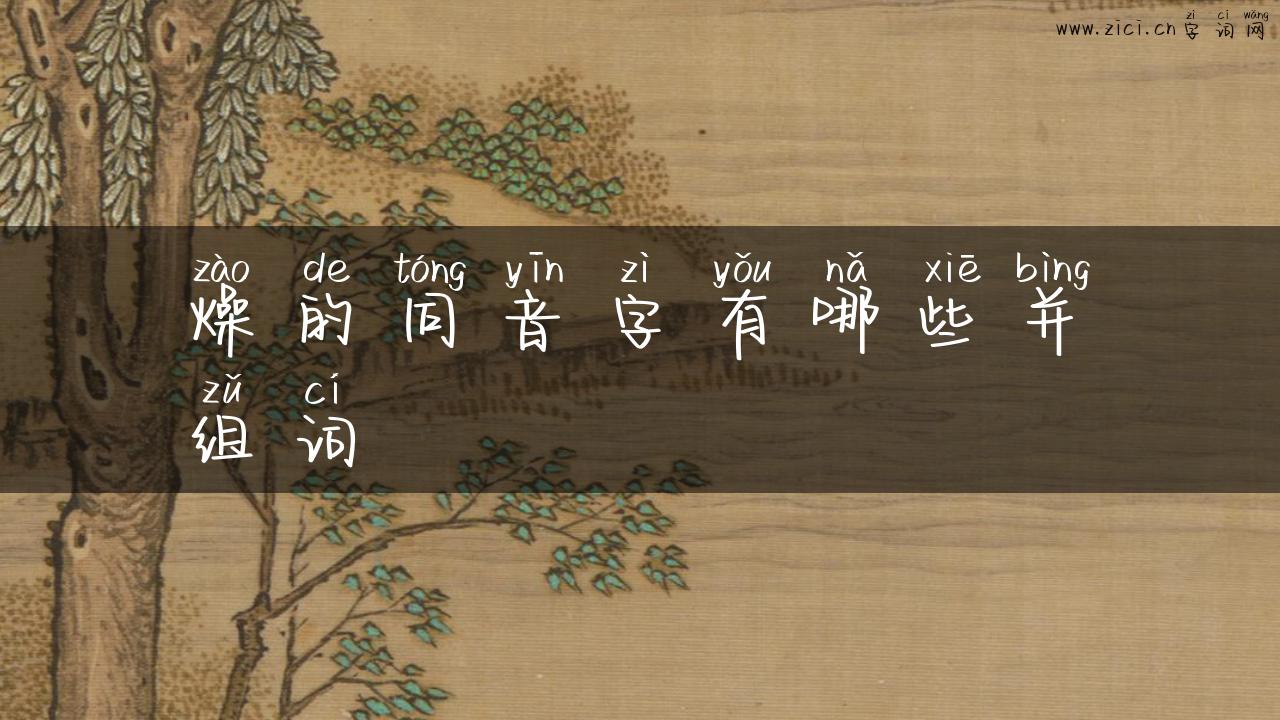 zì cí wǎng
www.zici.cn 字词网
zào de tóng yīn zì yǒu nǎ xiē bìng
燥的同音字有哪些并
zǔ cí
组词